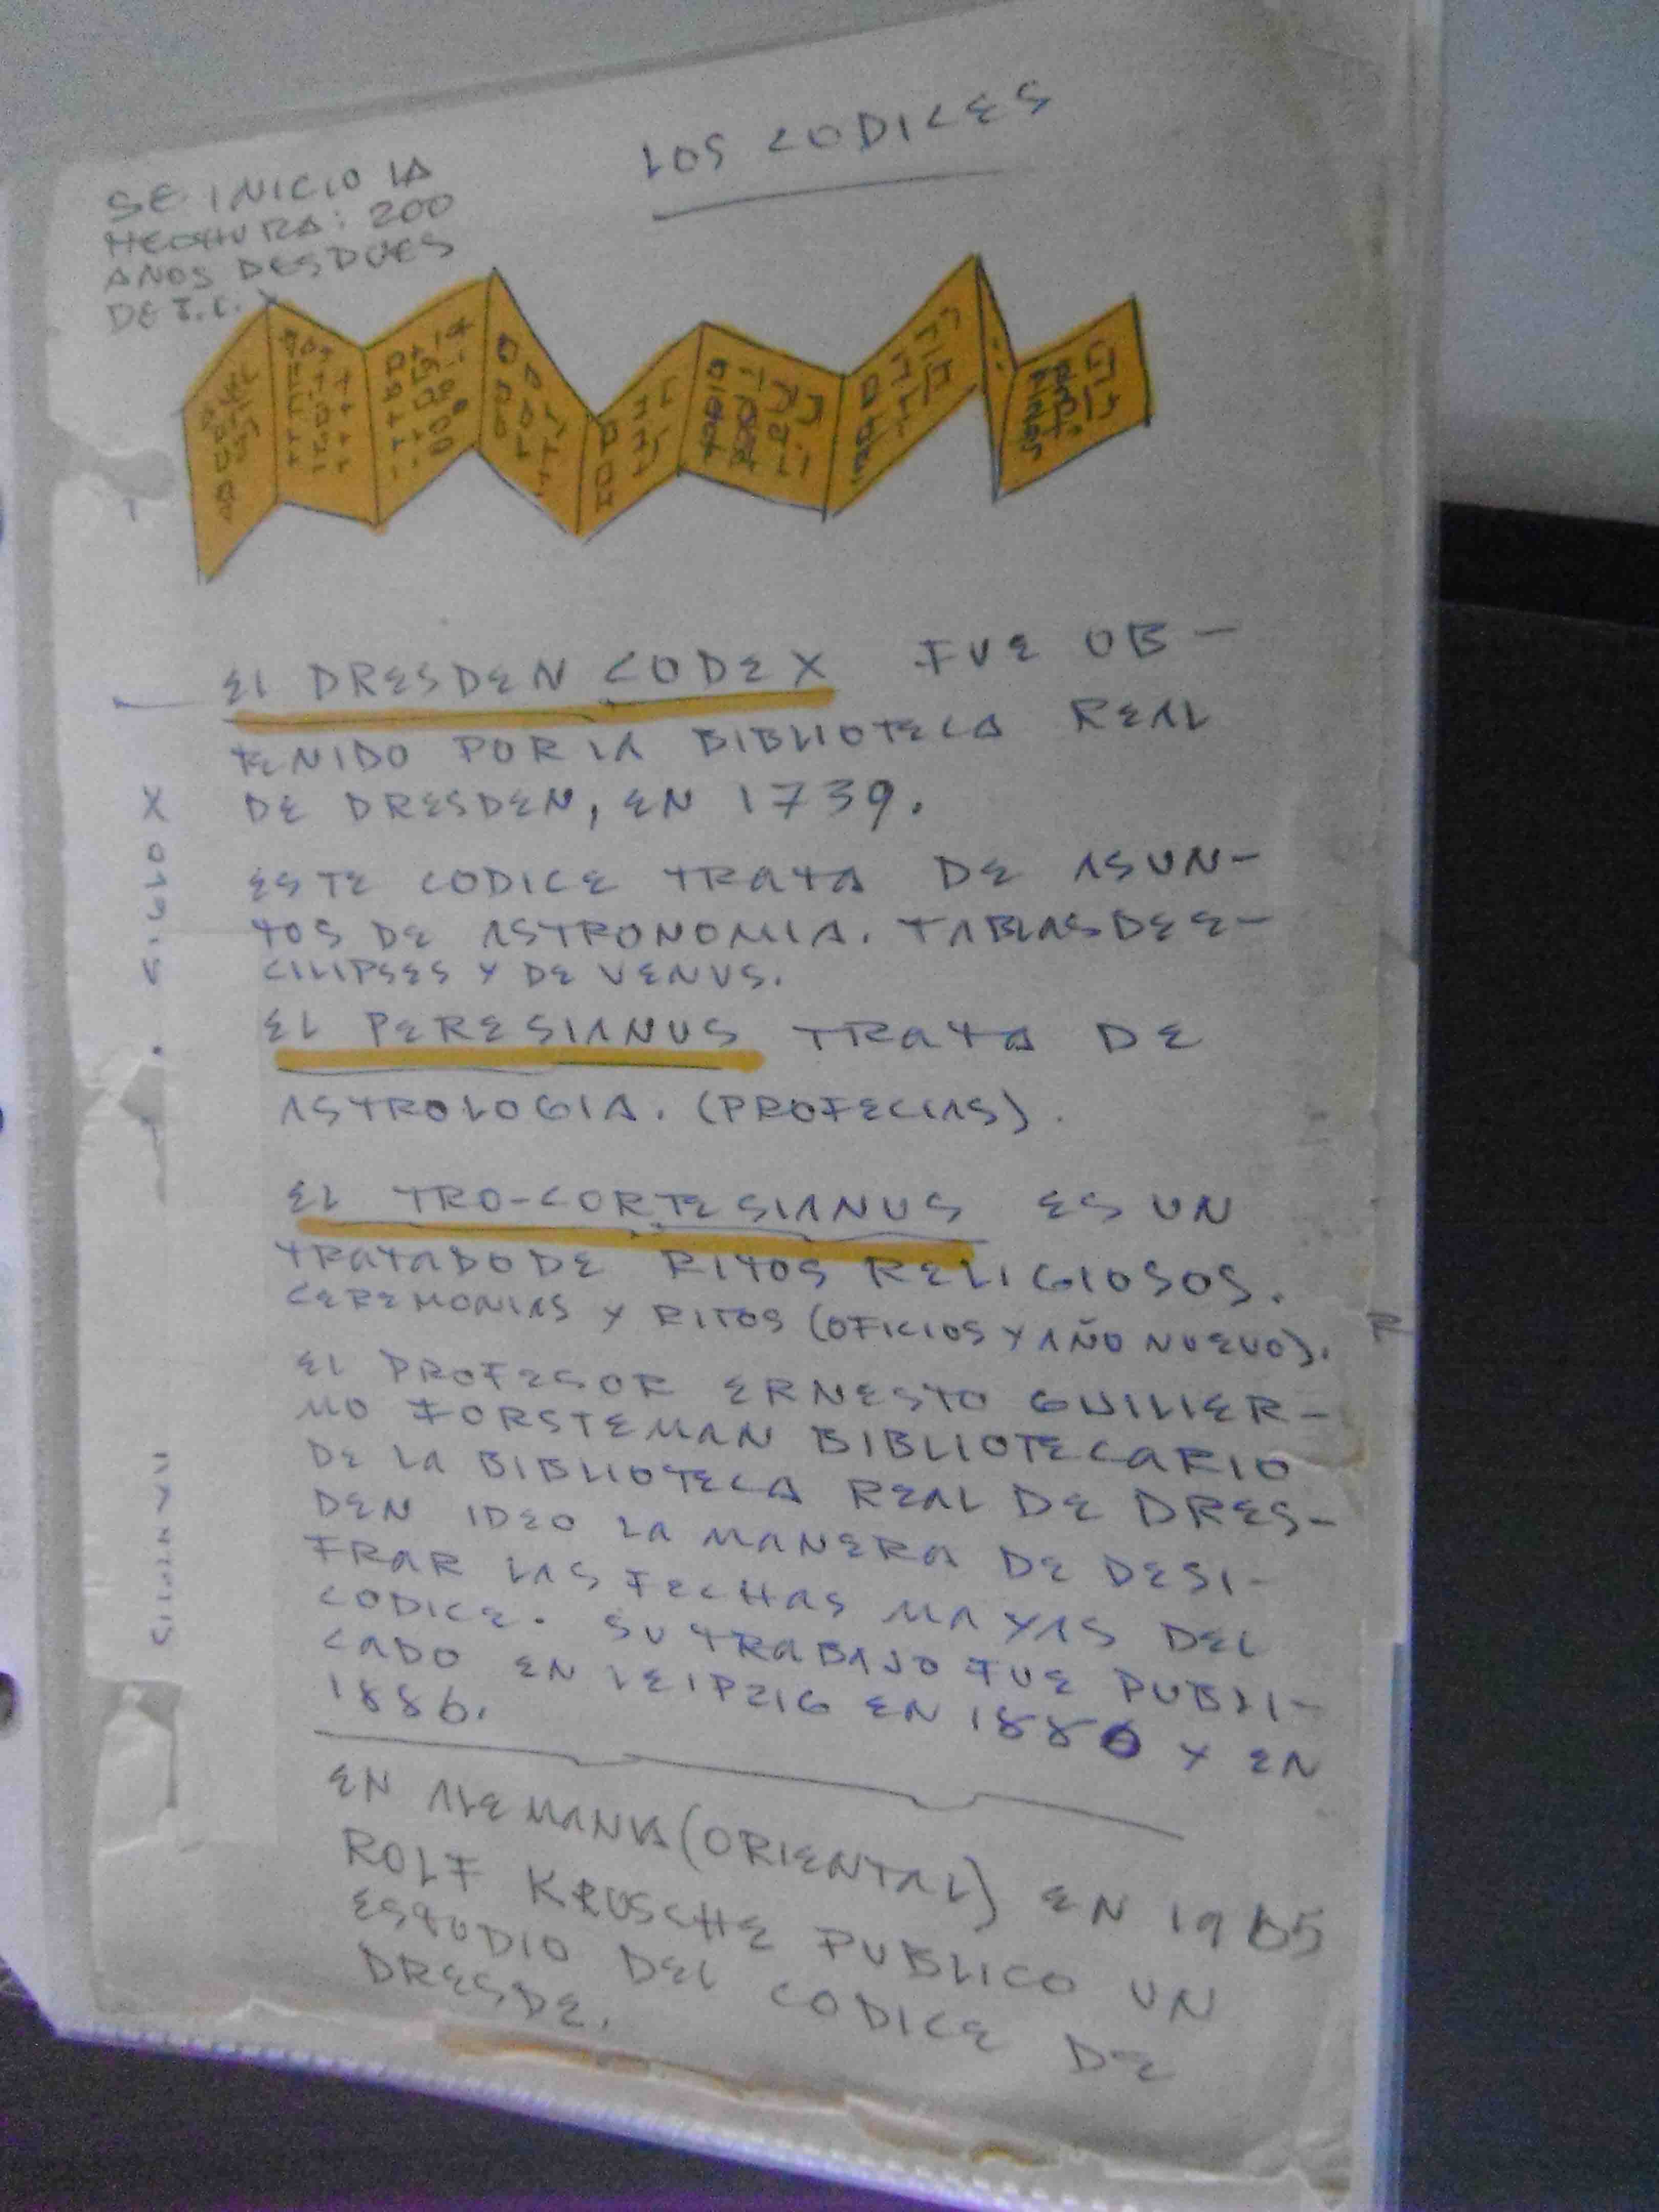 LOS CODICES
SE INICIO LA
HECHURA: 200
AÑOS DESPUES
DE J.C.
EL DRESDEN CODEX FUE OB-
TENIDO POR LA BIBLIOTECA REAL
DE DRESDEN, EN 1739.
ESTE CODICE TRATA DE ASUN-
TOS DE ASTRONOMIA. TABLAS DE E-
CLIPSES Y DE VENUS.
EL PERESIANUS TRATA DE
ASTROLOGIA. (PROFECIAS).
EL TRO-CORTESIANUS ES UN
TRATADO DE RITOS RELIGIOSOS.
CEREMONIAS Y RITOS (OFICIOS Y AÑO NUEVO).
EL PROFESOR ERNESTO GUILLER-
MO FORSTEMAN BIBLIOTECARIO
DE LA BIBLIOTECA REAL DE DRES-
DEN IDEO LA MANERA DE DESI-
FRAR LAS FECHAS MAYAS DEL
CODICE. SU TRABAJO FUE PUBLI-
CADO EN LEIPZIG EN 1880 Y EN
1886.
EN ALEMANIA (ORIENTAL) EN 19
ROLF KRUSCHE PUBLICO UN
ESTUDIO DEL CODICE DE
DRESDE.